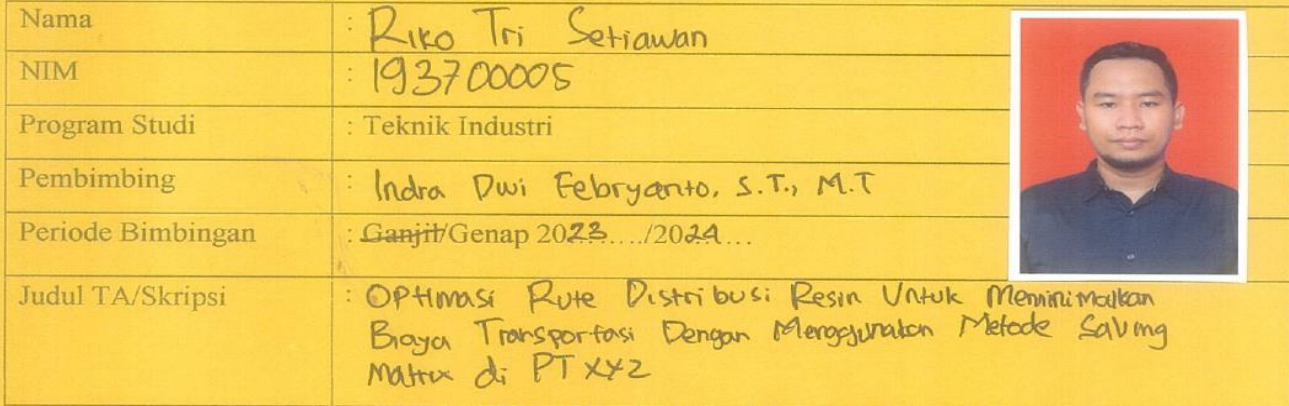 Nama : Riko Tri Setiawan
NIM : 193700005
Program Studi : Teknik Industri
Pembimbing : Indra Dwi Febryanto, S.T., M.T
Periode Bimbingan : Ganjil/Genap 2023...../2024....
Judul TA/Skripsi : Optimasi Rute Distribusi Resin Untuk Meminimalkan
Biaya Transportasi Dengan Menggunakan Metode Saving
Matrix di PT XYZ